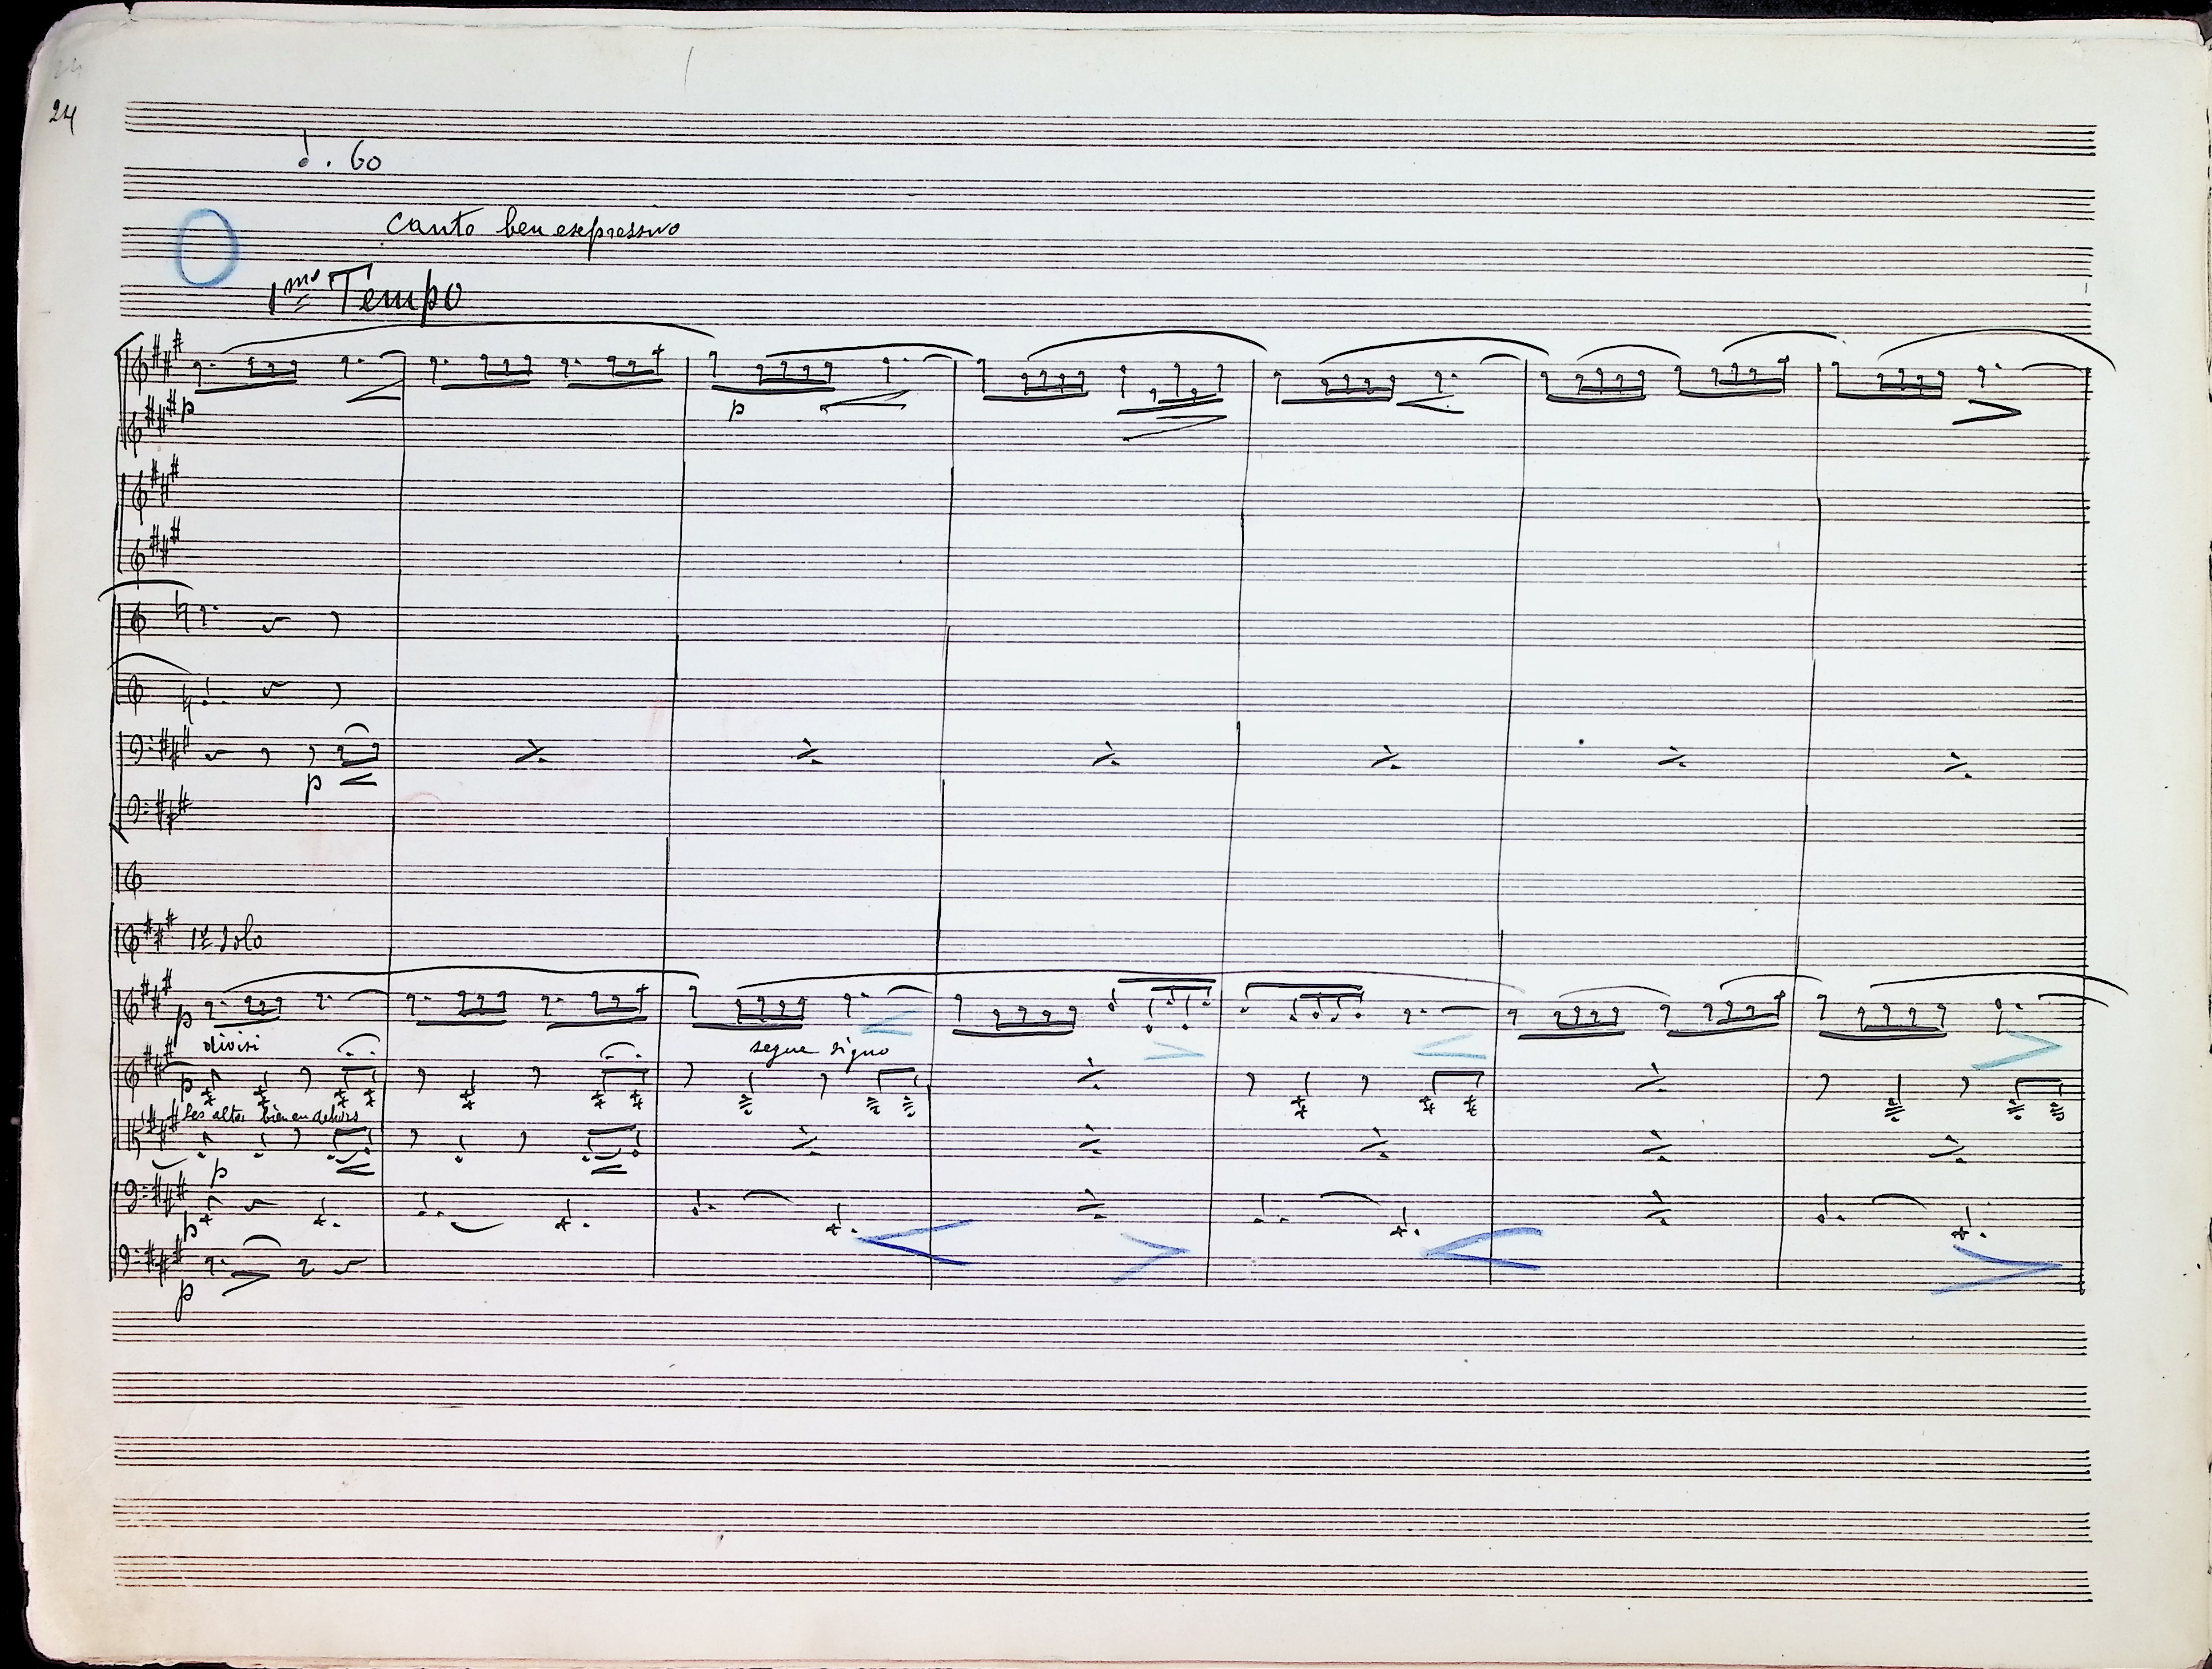 24
♩. 60
canto ben espressivo
O
1mo Tempo
p
p
p
1r Solo
p
divisi
segue siguo
p
Les altos bien en dehors
p
p
p